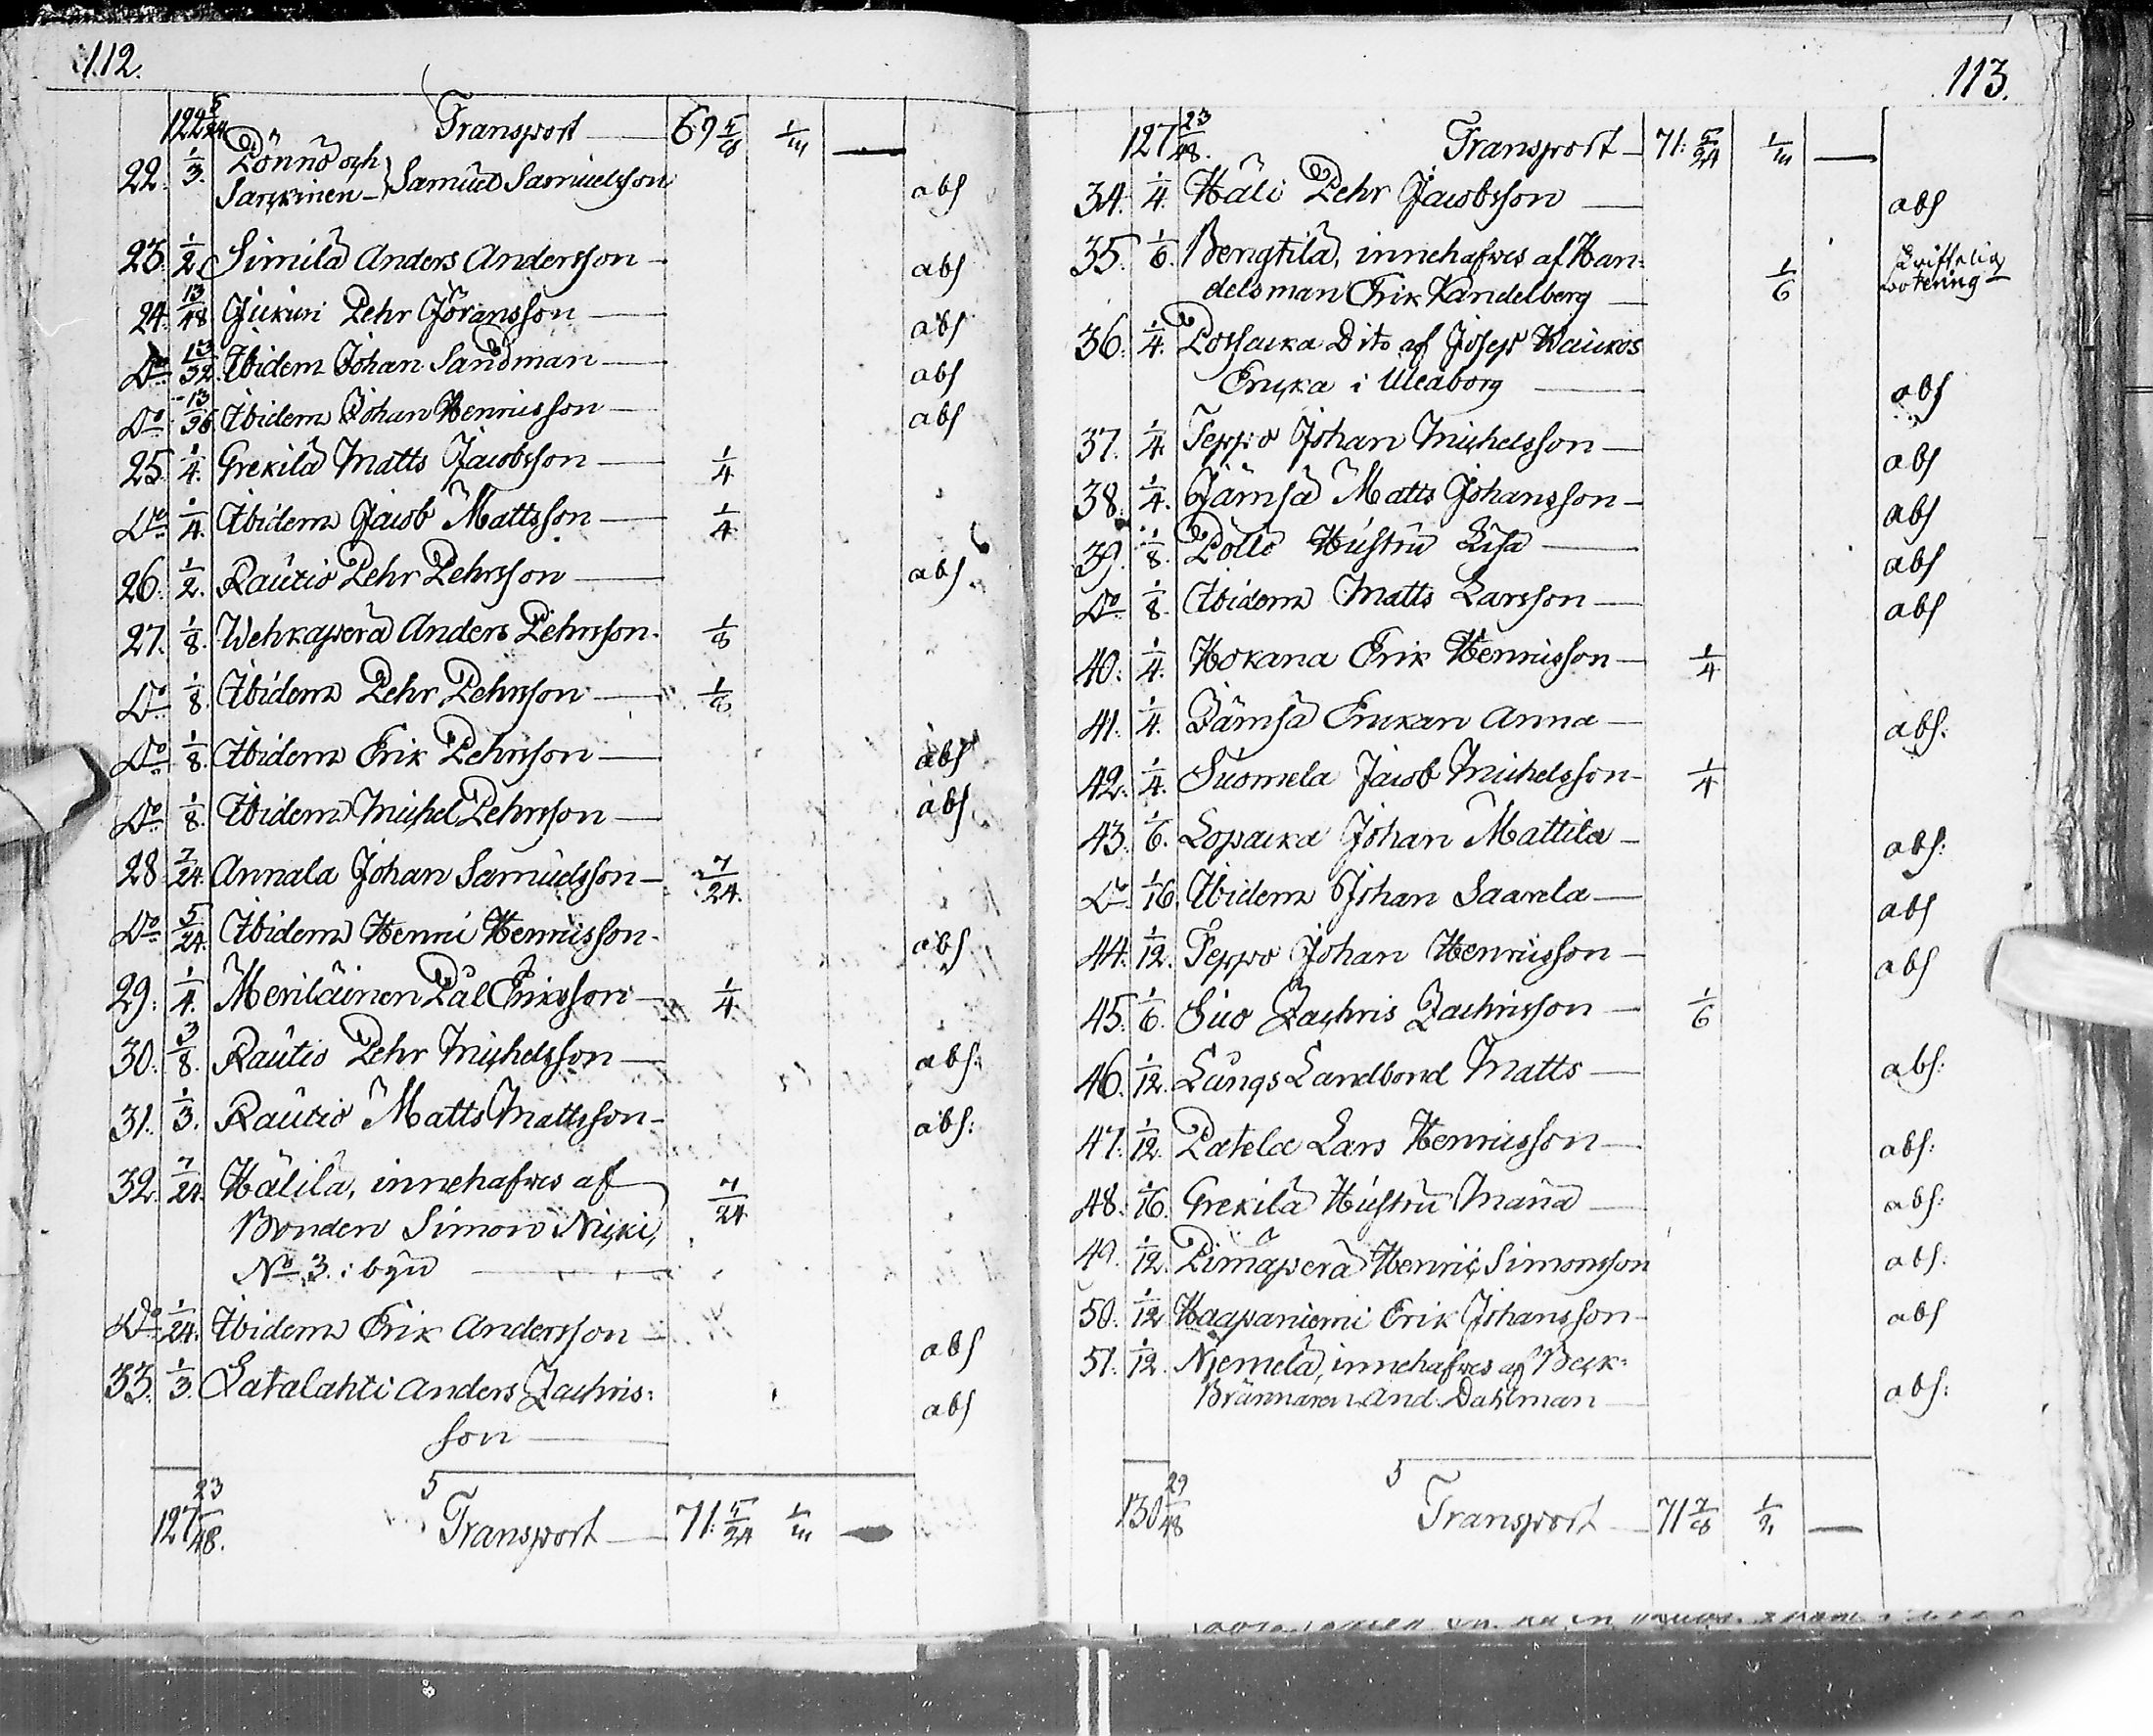 112.
122 5/24 Transport — 69 5/8 1/3 —
22. 1/3. Pönnö och
Sarkinen — } Samuel Samuelsson abs
23. 1/2. Similä Anders Andersson — abs
24. 13/48 Jukuri Pehr Jöransson — abs
Do 13/32. Ibidem Johan Sandman — abs
Do 13/96 Ibidem Johan Henricsson — abs
25. 1/4. Grekilä Matts Jacobsson — 1/4
Do 1/4. Ibidem Jacob Mattsson — 1/4
26. 1/2. Rautio Pehr Pehrsson — abs
27. 1/8. Wehkaperä Anders Pehrsson. 1/8
Do 1/8. Ibidem Pehr Pehrsson — 1/8
Do 1/8. Ibidem Erik Pehrsson — abs
Do 1/8. Ibidem Michel Pehrsson — abs
28 7/24. Annala Johan Samuelsson — 7/24.
Do 5/24. Ibidem Henric Henricsson. abs
29. 1/4. Meriläinen Pål Eriksson — 1/4
30. 3/8. Rautio Pehr Michelsson — abs:
31. 1/3. Rautio Matts Mattsson — abs:
32. 7/24. Hälilä, innehafwes af 7/24
Bonden Simon Nicki,
No 3. i byn —
Do 1/24. Ibidem Erik Andersson — abs
33. 1/3. Latalahti Anders Zachris: abs
son —
127 23/48. 5 Transport — 71. 5/24 1/3 —
113.
127 23/48. Transport — 71. 5/24 1/3 —
34. 1/4. Häli Pehr Jacobsson — abs
35. 1/6. Bengtilä, innehafwes af Han: 1/6 Skriftelig
delsman Erik Candelberg — wotering —
36. 1/4. Dito af Joseph
Enka i Uleåborg — abs
37. 1/4. Teppo Johan Michelsson — abs
38. 1/4. Jämsä Matts Johansson — abs
39. 1/8. Pöllö Hustru Lisa — abs
Do 1/8. Ibidem Matts Larsson — abs
40. 1/4. Hokana Erik Henricsson — 1/4
41. 1/4. Jämsä Enckan Anna — abs.
42. 1/4. Suomela Jacob Michelsson — 1/4
43. 1/6. Lopacka Johan Mattila — abs:
Do 1/16. Ibidem Johan Saarela — abs
44. 1/12. Teppo Johan Henricsson — abs
45. 1/6. Suo Zachris Zachrisson — 1/6
46. 1/12. Lungs Landbond Matts — abs:
47. 1/12. Patela Lars Henricsson — abs:
48. 1/16. Grekilä Hustru Maria — abs:
49. 1/12. Pimäperä Henric Simonsson abs:
50. 1/12 Haapaniemi Erik Johansson — abs
51. 1/12. Niemelä, innehafwes af Beck:
Brännaren And. Dahlman — abs:
130 29/48 5 Transport — 71 7/8 1/2 —